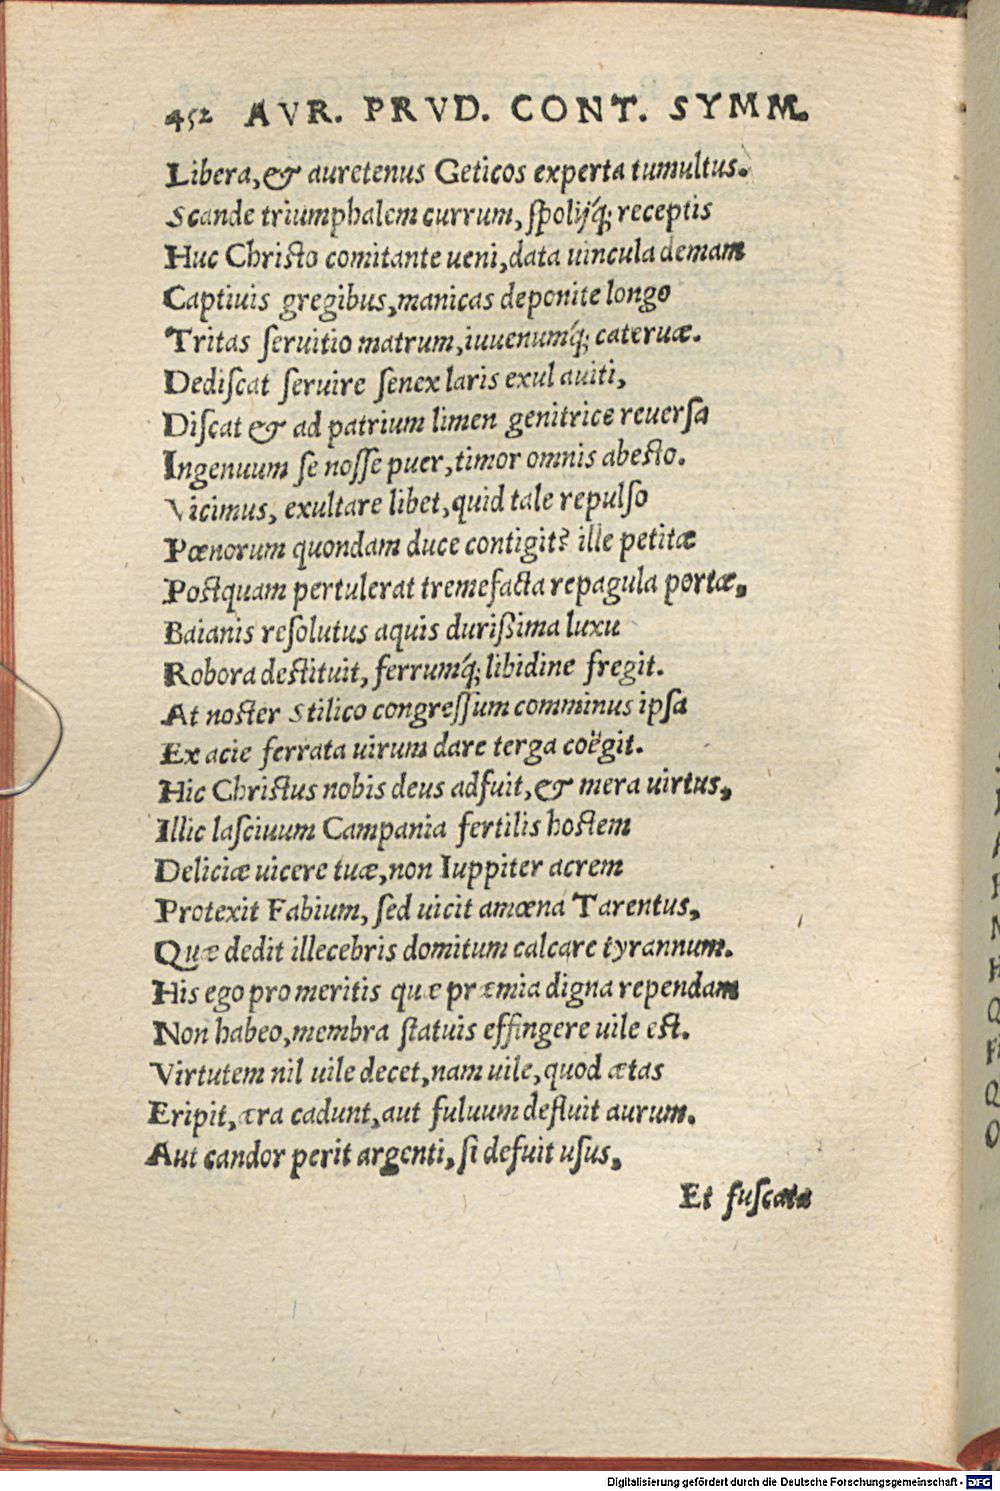 452 AVR. PRVD. CONT. SYMM.
Libera, & auretenus Geticos experta tumultus.
Scande triumphalem currum, ſpolijq́; receptis
Huc Chriſto comitante ueni, data uincula demam
Captiuis gregibus, manicas deponite longo
Tritas ſeruitio matrum, iuuenumq́; cateruæ.
Dediſcat ſeruire ſenex laris exul auiti,
Diſcat & ad patrium limen genitrice reuerſa
Ingenuum ſe noſſe puer, timor omnis abeſto.
Vicimus, exultare libet, quid tale repulſo
Pœnorum quondam duce contigit? ille petitæ
Poſtquam pertulerat tremefacta repagula portæ,
Baianis reſolutus aquis durißima luxu
Robora deſtituit, ferrumq́; libidine fregit.
At noſter Stilico congreſſum comminus ipſa
Ex acie ferrata uirum dare terga coëgit.
Hic Chriſtus nobis deus adfuit, & mera uirtus,
Illic laſciuum Campania fertilis hoſtem
Deliciæ uicere tuæ, non Iuppiter acrem
Protexit Fabium, ſed uicit amœna Tarentus,
Quæ dedit illecebris domitum calcare tyrannum.
His ego pro meritis quæ præmia digna rependam
Non habeo, membra ſtatuis effingere uile eſt.
Virtutem nil uile decet, nam uile, quod ætas
Eripit, æra cadunt, aut fuluum defluit aurum.
Aut candor perit argenti, ſi defuit uſus,
Et fuſcata
Digitalisierung gefördert durch die Deutsche Forschungsgemeinschaft - DFG